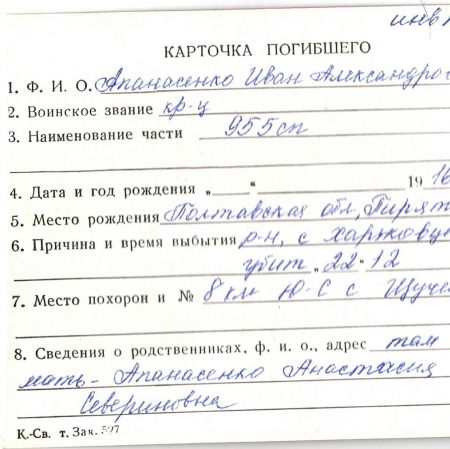 инв
КАРТОЧКА ПОГИБШЕГО
1. Ф. И. О. Апанасенко Иван Александро
2. Воинское звание кр-ц
3. Наименование части 955сп
4. Дата и год рождения „ “ 19 16
5. Место рождения Полтавская обл, Пирят
6. Причина и время выбытия р-н, с Харковц
убит „22“12
7. Место похорон и № 8 км Ю-С с Щуче
8. Сведения о родственниках, ф. и. о., адрес там
мать - Апанасенко Анастасия
Севериновна
К.-Св. т. Зак. 597